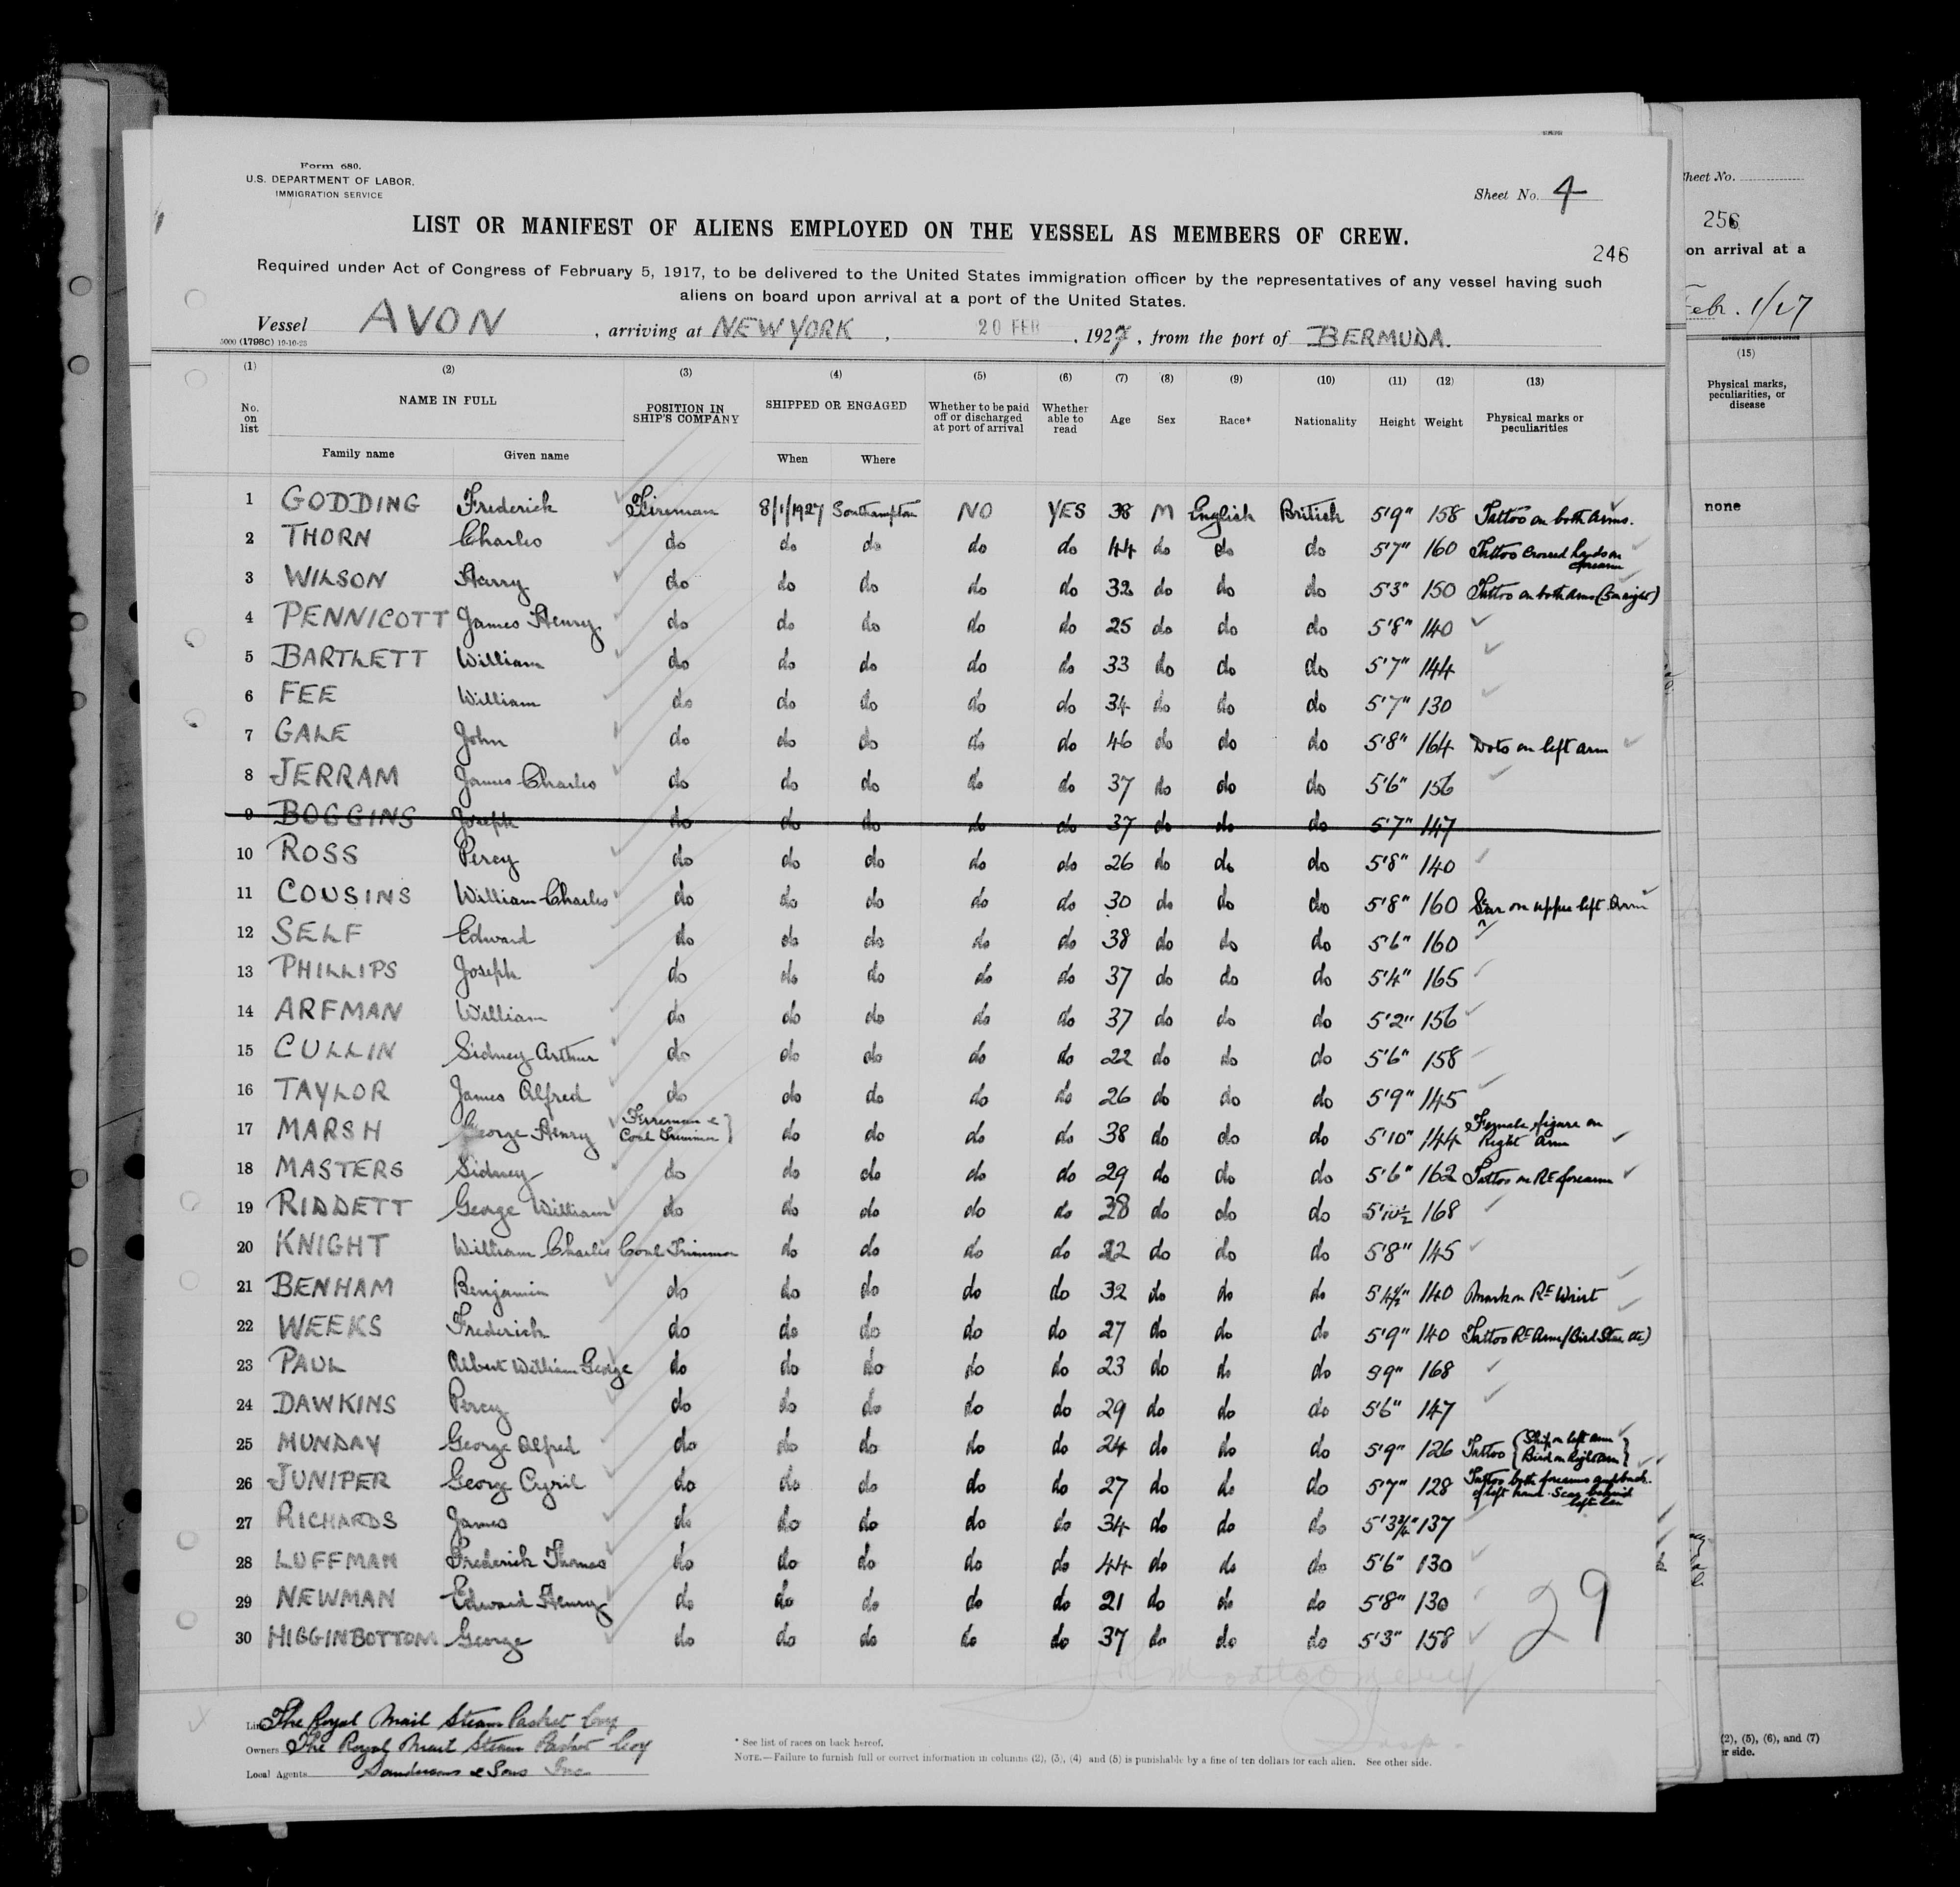 Form 680.
U.S. DEPARTMENT OF LABOR.
IMMIGRATION SERVICE
Sheet No. 4
Sheet No.
LIST OR MANIFEST OF ALIENS EMPLOYED ON THE VESSEL AS MEMBERS OF CREW.
246
256
on arrival at a
Required under Act of Congress of February 5, 1917, to be delivered to the United States immigration officer by the representatives of any vessel having such
aliens on board upon arrival at a port of the United States.
Febr. 1/27
Vessel AVON, arriving at NEW YORK, 20 FEB, 1927, from the port of BERMUDA.
5000 (1798c) 10-10-23
(1) (2) (3) (4) (5) (6) (7) (8) (9) (10) (11) (12) (13) (15)
No. on list NAME IN FULL POSITION IN SHIP'S COMPANY SHIPPED OR ENGAGED Whether to be paid off or discharged at port of arrival Whether able to read Age Sex Race* Nationality Height Weight Physical marks or peculiarities
Physical marks, peculiarities, or disease
Family name Given name When Where
1 GODDING Frederick Fireman 8/1/1927 Southampton NO YES 38 M English British 5'9" 158 Tattoo on both Arms.
none
2 THORN Charles do do do do do 44 do do do 5'7" 160 Tattoo Crossed hands on forearm
3 WILSON Harry do do do do do 32 do do do 5'3" 150 Tattoo on both Arms
4 PENNICOTT James Henry do do do do do 25 do do do 5'8" 140
5 BARTLETT William do do do do do 33 do do do 5'7" 144
6 FEE William do do do do do 34 do do do 5'7" 130
7 GALE John do do do do do 46 do do do 5'8" 164 Dots on left arm
8 JERRAM James Charles do do do do do 37 do do do 5'6" 156
9 BOGGINS Joseph do do do do do 37 do do do 5'7" 147
10 ROSS Percy do do do do do 26 do do do 5'8" 140
11 COUSINS William Charles do do do do do 30 do do do 5'8" 160 Scar on upper left Arm
12 SELF Edward do do do do do 38 do do do 5'6" 160
13 PHILLIPS Joseph do do do do do 37 do do do 5'4" 165
14 ARFMAN William do do do do do 37 do do do 5'2" 156
15 CULLIN Sidney Arthur do do do do do 22 do do do 5'6" 158
16 TAYLOR James Alfred do do do do do 26 do do do 5'9" 145
17 MARSH George Henry Fireman & Coal Trimmer do do do do 38 do do do 5'10" 144 Female figure on Right Arm
18 MASTERS Sidney do do do do do 29 do do do 5'6" 162 Tattoo on Rt forearm
19 RIDDETT George William do do do do do 38 do do do 5'10½ 168
20 KNIGHT William Charles Coal Trimmer do do do do 22 do do do 5'8" 145
21 BENHAM Benjamin do do do do do 32 do do do 5'4½" 140 Mark on Rt Wrist
22 WEEKS Frederick do do do do do 27 do do do 5'9" 140 Tattoo Rt Arm (Bird Star etc)
23 PAUL Albert William George do do do do do 23 do do do 5'9" 168
24 DAWKINS Percy do do do do do 29 do do do 5'6" 147
25 MUNDAY George Alfred do do do do do 24 do do do 5'9" 126 Tattoo {Ship on left arm Bird on Right arm}
26 JUNIPER George Cyril do do do do do 27 do do do 5'7" 128 Tattoo both forearms back of left hand. Scar behind left ear
27 RICHARDS James do do do do do 34 do do do 5'3¾" 137
28 LUFFMAN Frederick Thomas do do do do do 44 do do do 5'6" 130
29 NEWMAN Edward Henry do do do do do 21 do do do 5'8" 130
30 HIGGINBOTTOM George do do do do do 37 do do do 5'3" 158
29
Line The Royal Mail Steam Packet Coy
Owners The Royal Mail Steam Packet Coy
Local Agents Sanderson & Sons Inc.
* See list of races on back hereof.
NOTE.—Failure to furnish full or correct information in columns (2), (3), (4) and (5) is punishable by a fine of ten dollars for each alien. See other side.
Insp.
(2), (5), (6), and (7)
er side.